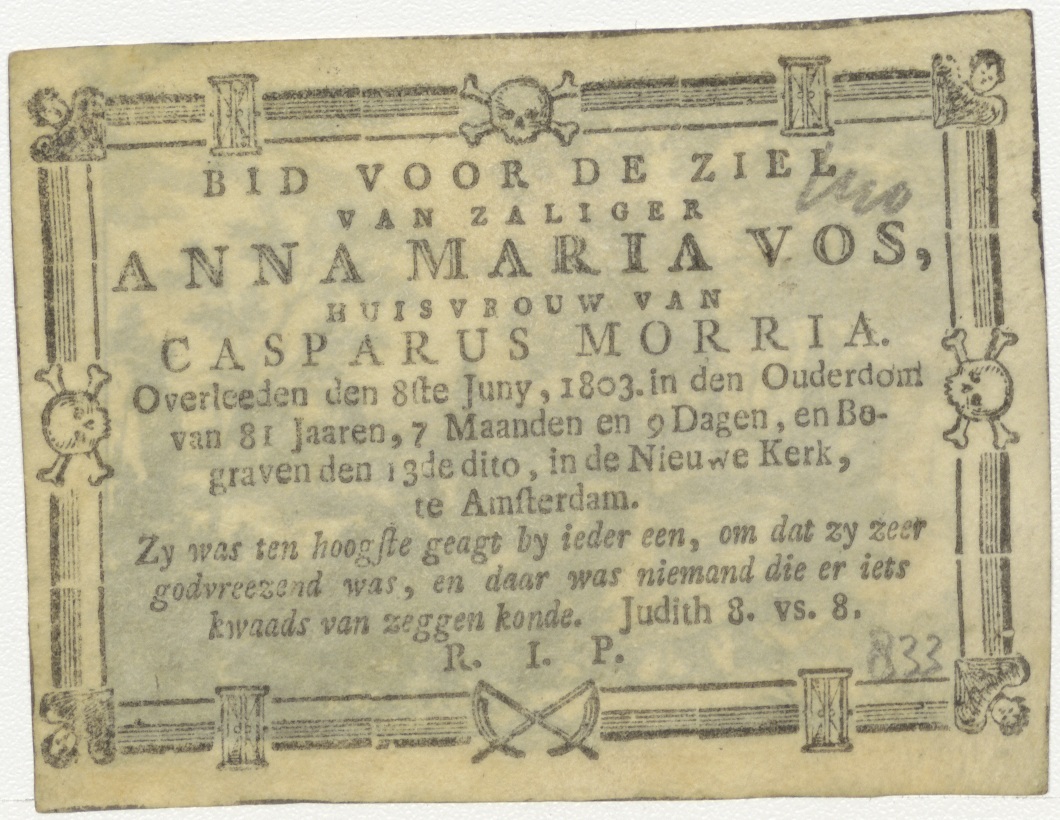 BID VOOR DE ZIEL
VAN ZALIGER
ANNA MARIA VOS,
HUISVROUW VAN
CASPARUS MORRIA.
Overleeden den 8ſte Juny, 1803. in den Ouderdom
van 81 Jaaren, 7 Maanden en 9 Dagen, en Be-
graven den 13de dito, in de Nieuwe Kerk,
te Amſterdam.
Zy was ten hoogſte geagt by ieder een, om dat zy zeer
godvreezend was, en daar was niemand die er iets
kwaads van zeggen konde. Judith 8. vs. 8.
R. I. P.
833